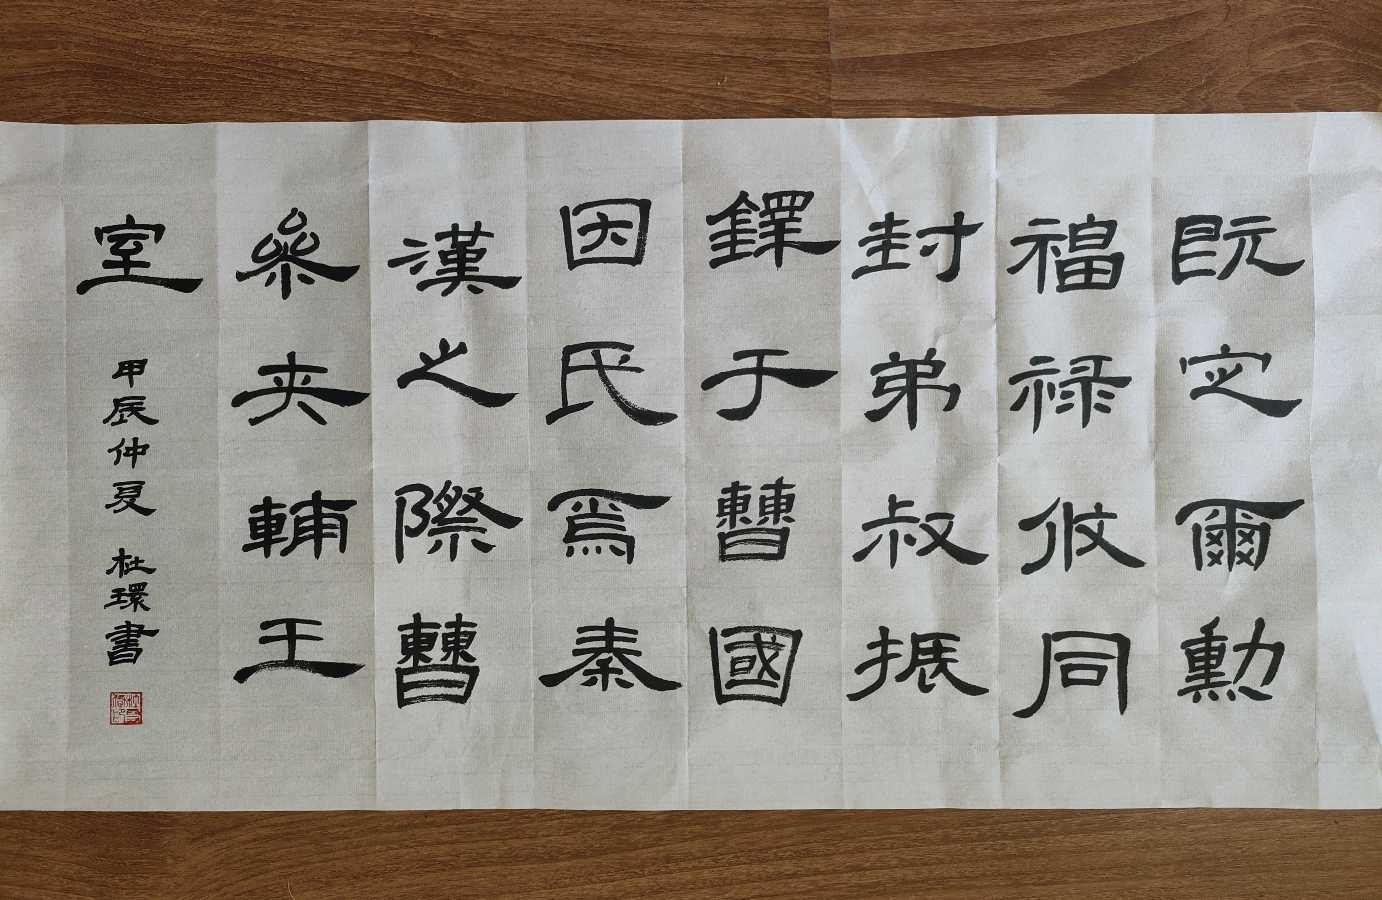 既定爾勳
福禄攸同
封弟叔振
鐸于曹國
因氏焉秦
漢之際曹
參夾輔王
室
甲辰仲夏 杜環書